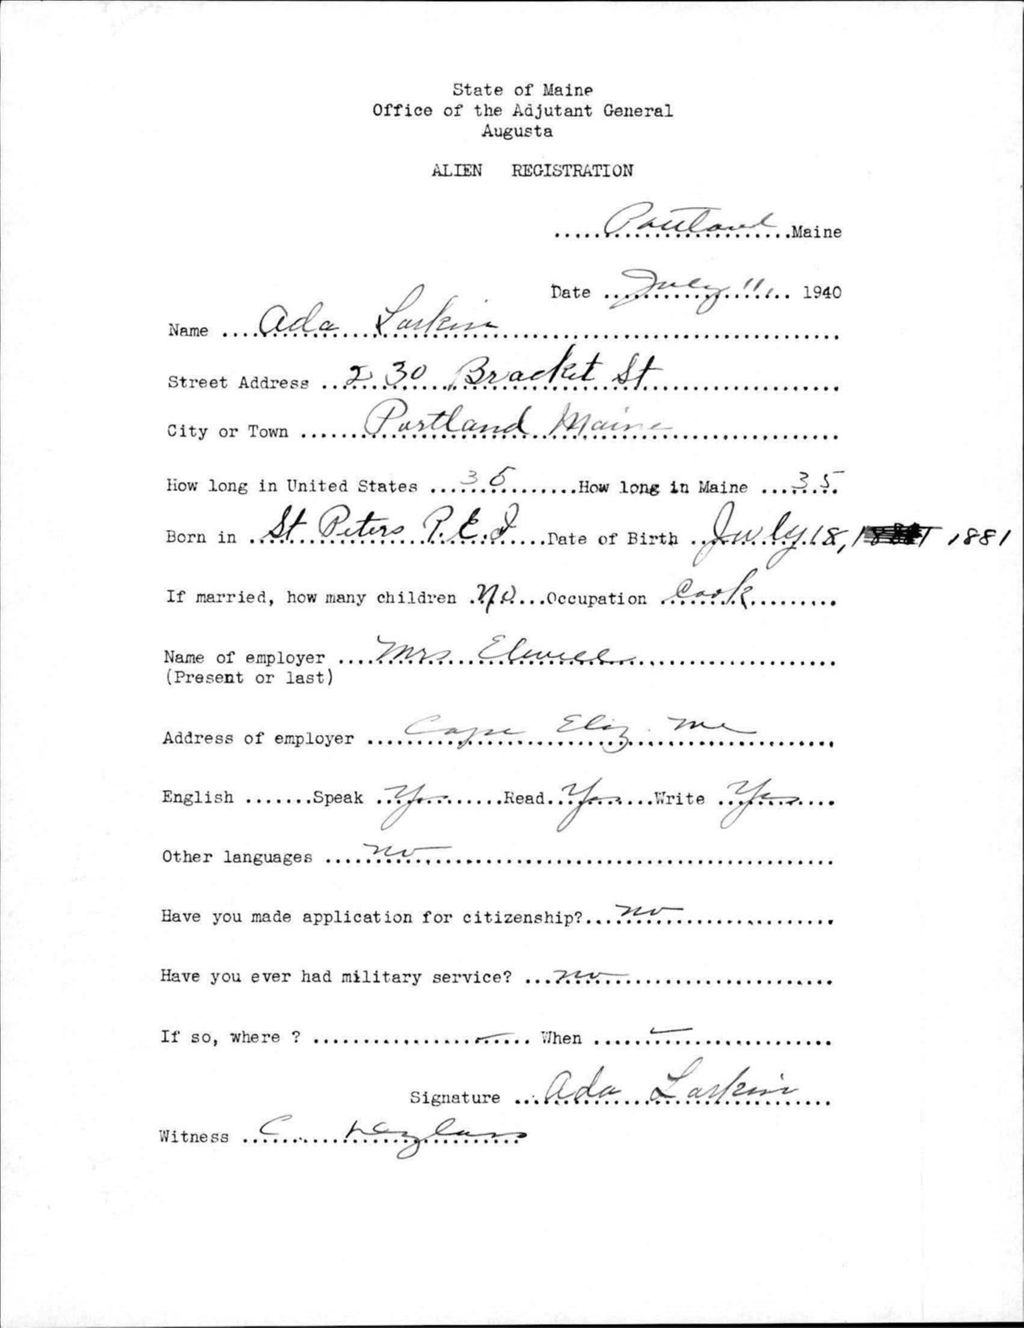 State of Maine
Office of the Adjutant General
Augusta
ALIEN REGISTRATION
.....Portland.....Maine
Date ...July 11,... 1940
Name ....Ada Larkin..............................
Street Address ..230 Bracket St....................
City or Town ......Portland Maine..................
How long in United States ...35.........How long in Maine ...35
Born in ..St Peters P.E.I....Date of Birth ..July 18, 1881
If married, how many children .No...Occupation .Cook.........
Name of employer ....Mrs. .....................
(Present or last)
Address of employer ...Cape Eliz. Me..............
English .......Speak ..Yes.......Read..Yes...Write ..Yes....
Other languages ....no..............................
Have you made application for citizenship?...no..............
Have you ever had military service? ...no....................
If so, where ? ..................–.... When .....–................
Signature ...Ada Larkin....
Witness ..C. ..........